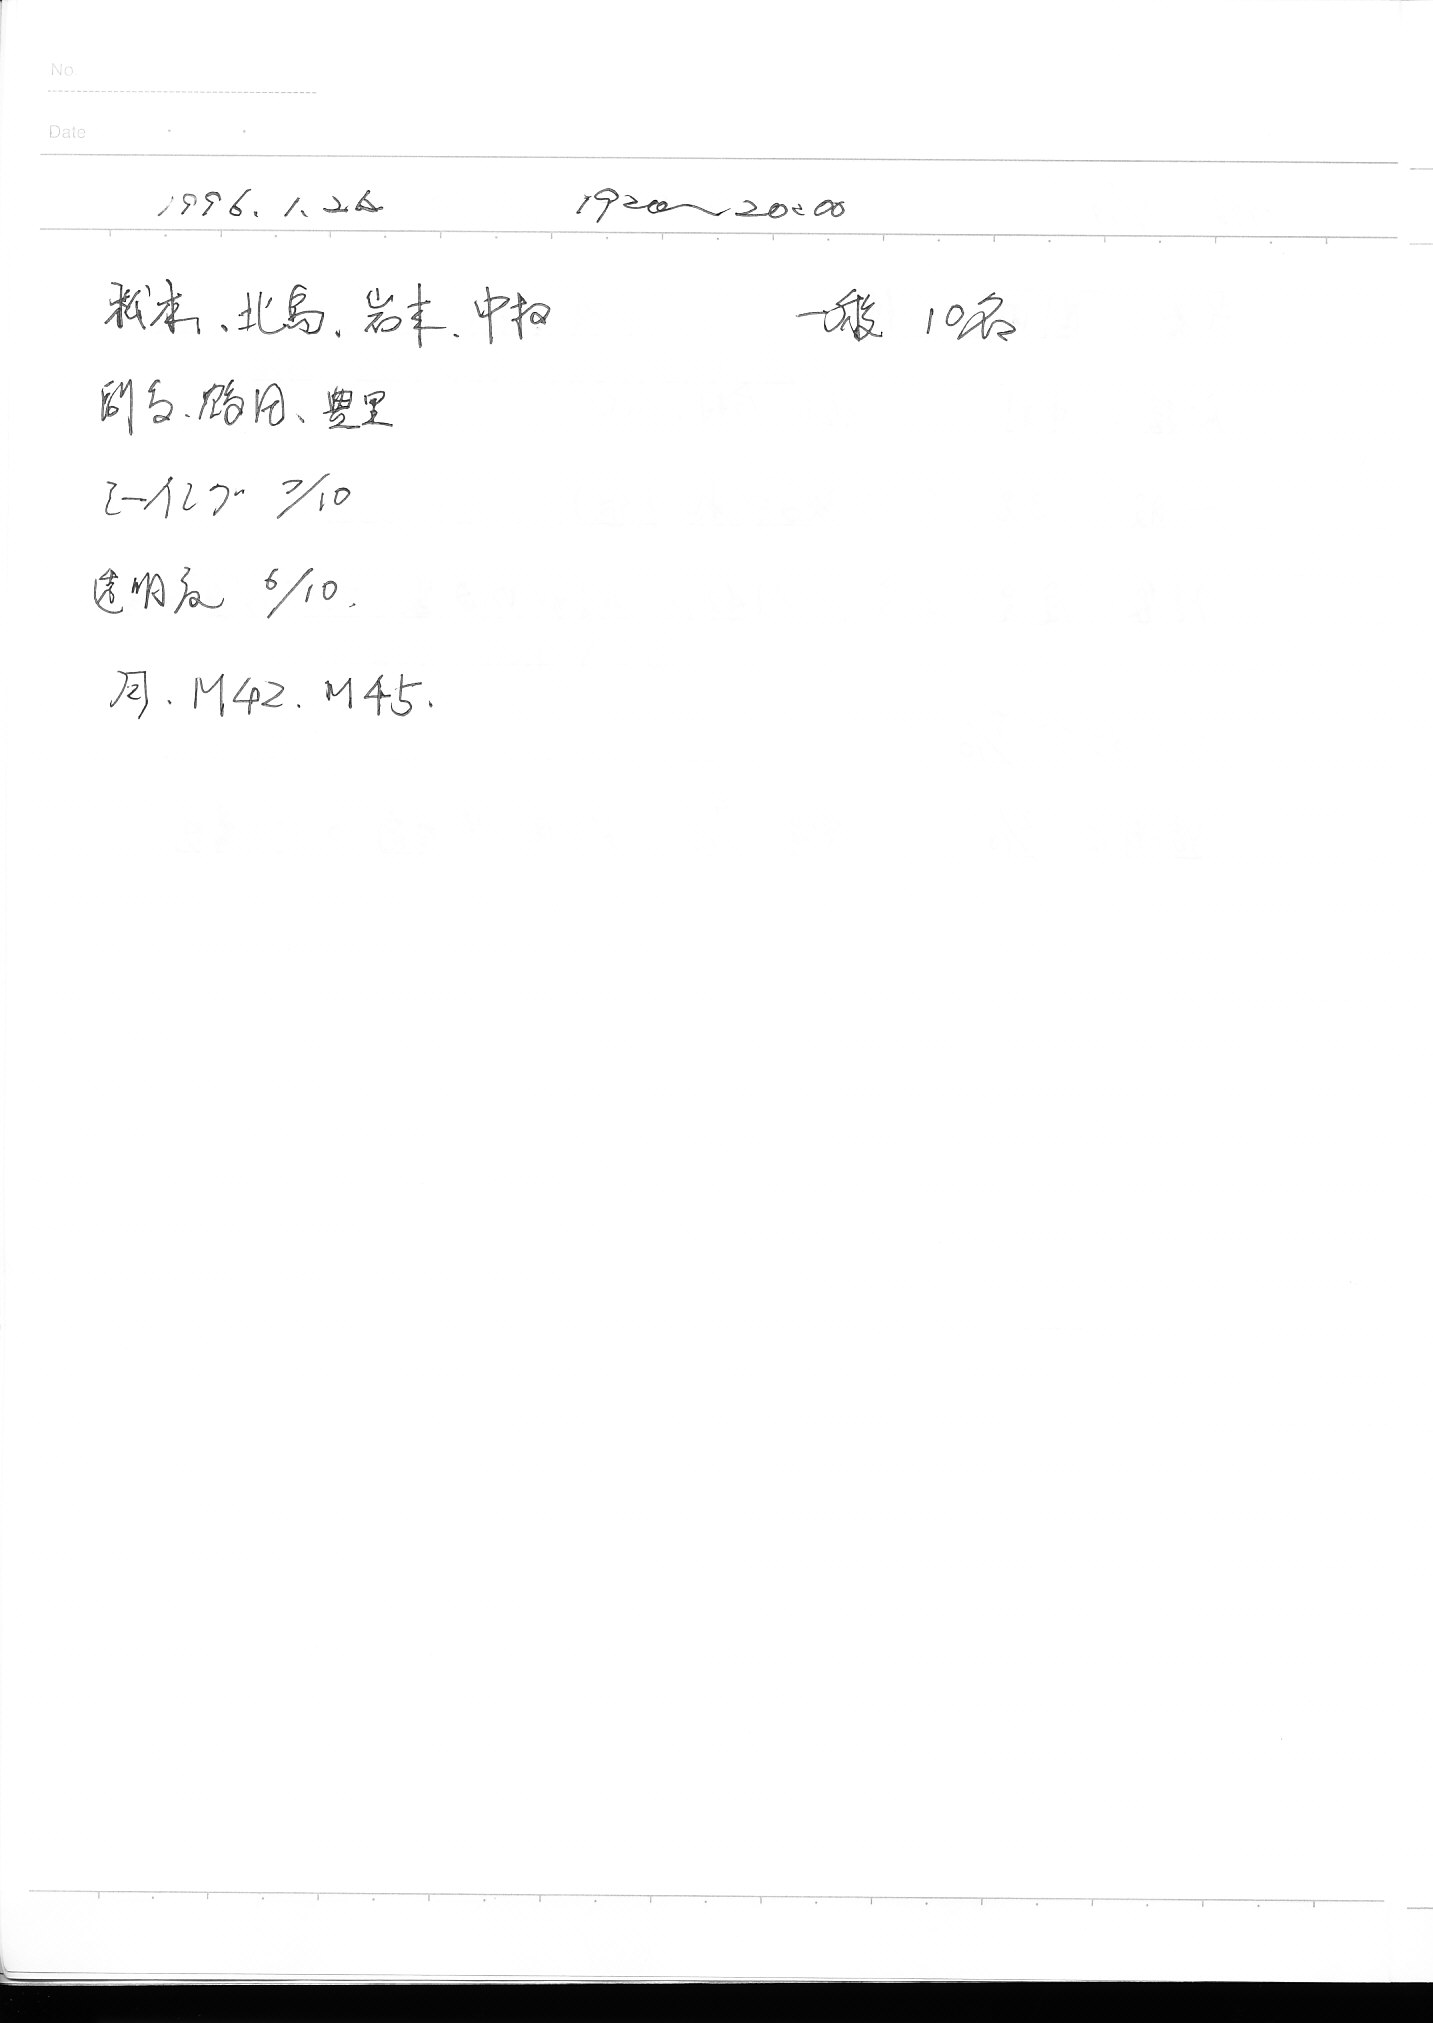 No.
Date
1996. 1. 26 19:00～20:00
松本、北島、岩本、中村
、鶴田、豊里
一般 10名
シーイング 7/10
透明度 6/10.
月. M42. M45.